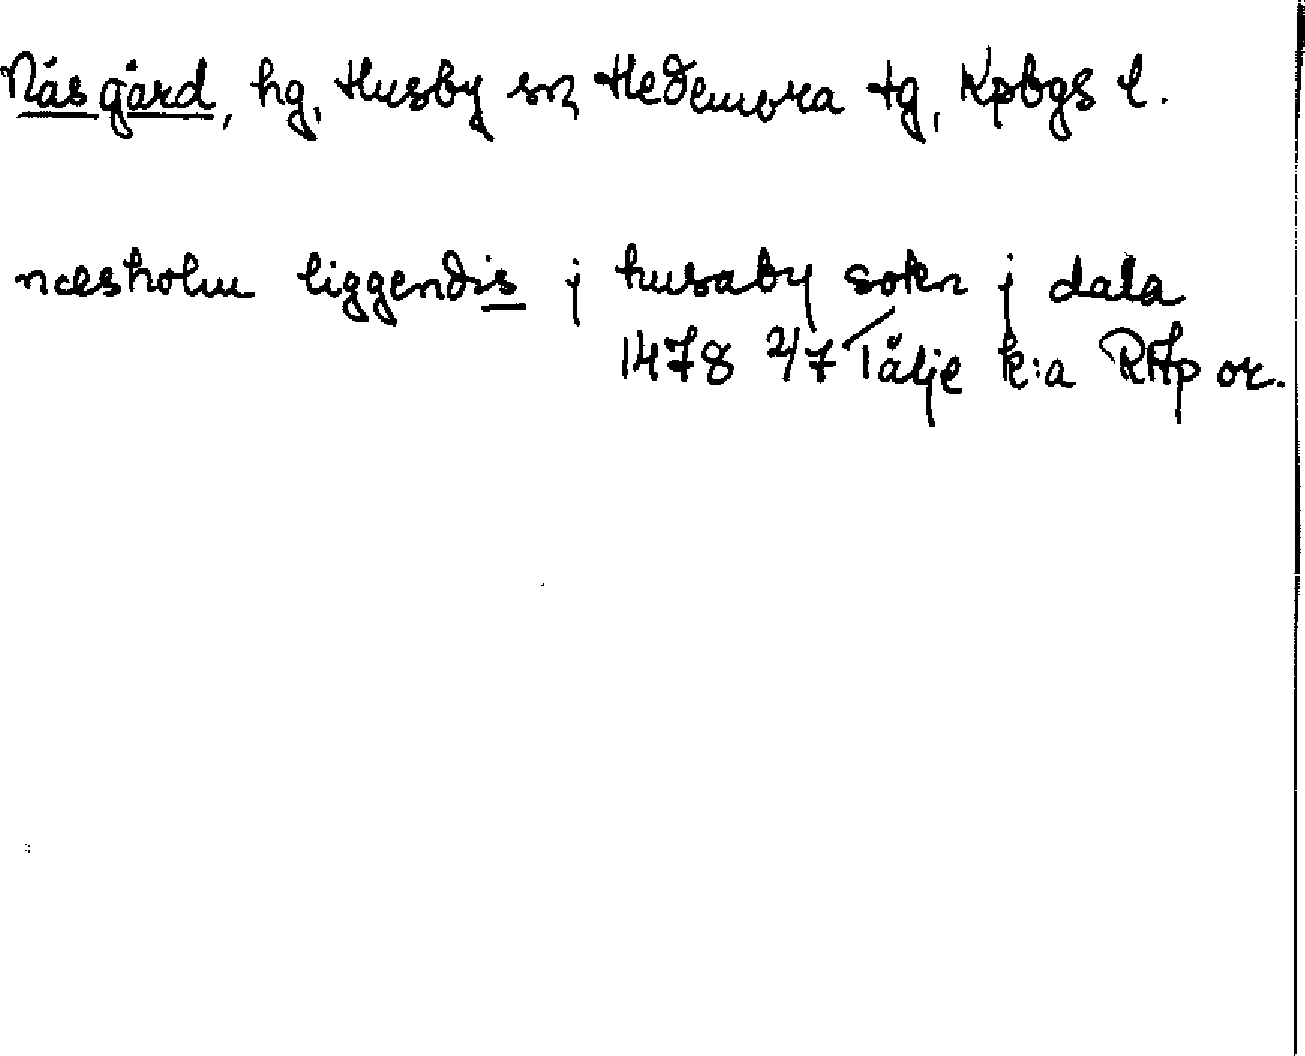 Näsgård, hg, Husby sn, Hedemora tg, Kpbgs l.
næsholm liggendis j husaby sokn j dala
1478 2/7 Tälje k:a RAp or.